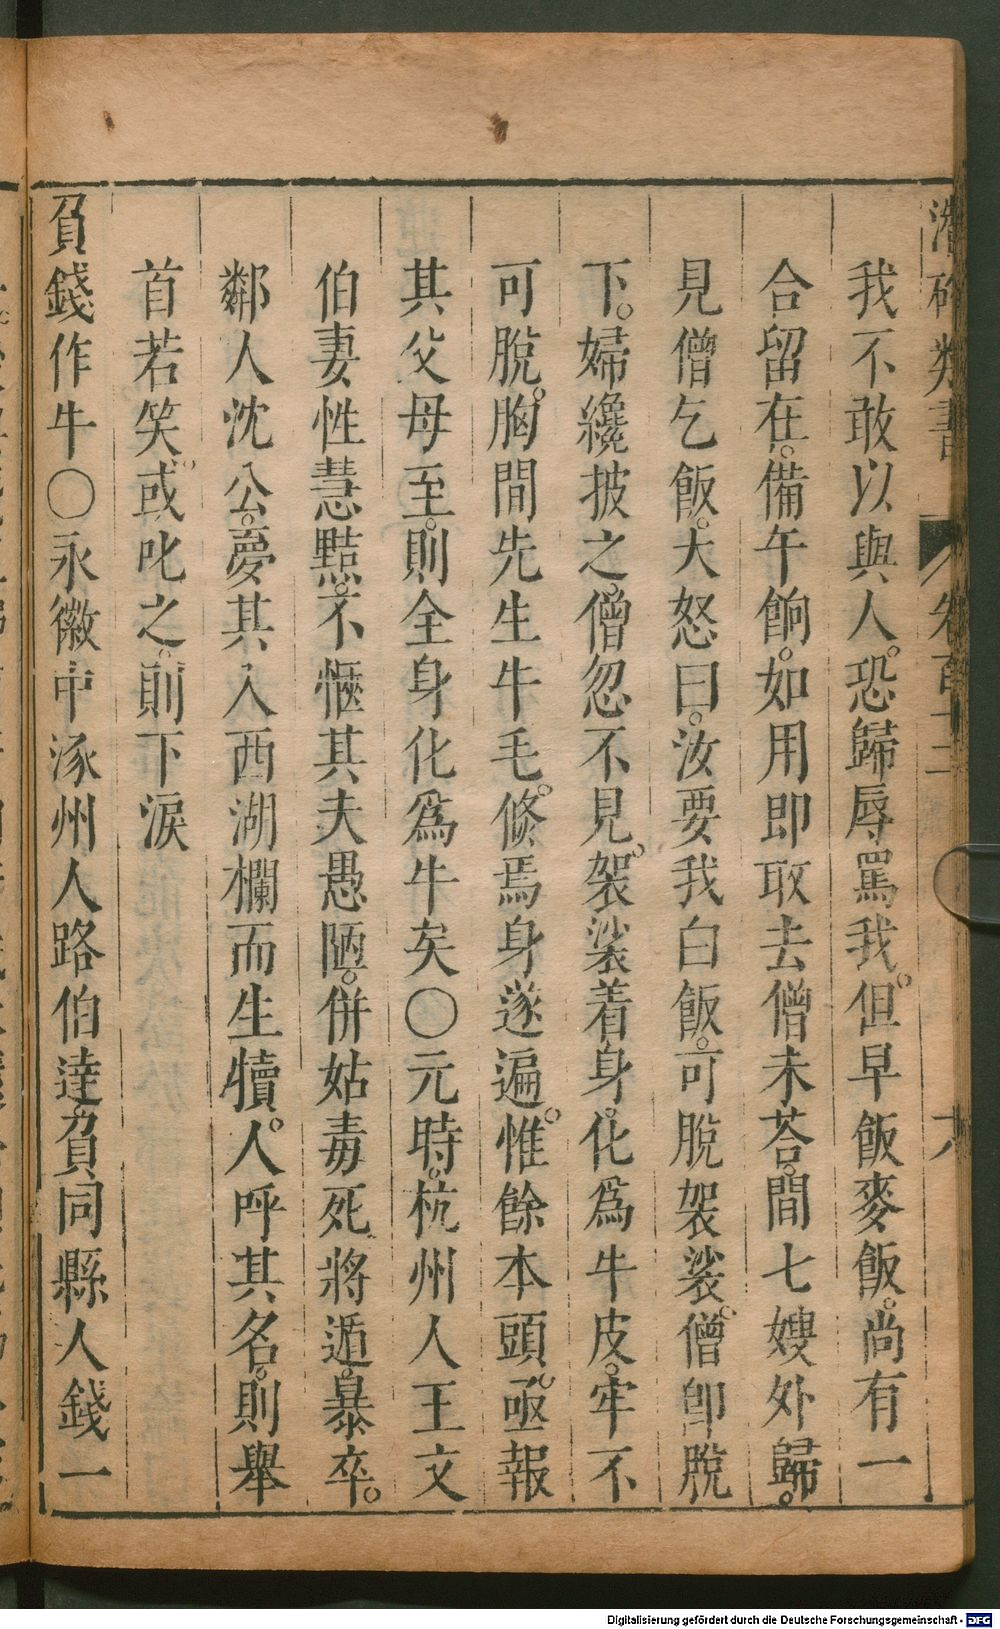 類書 卷百十二 六
我不敢以與人。恐歸辱罵我。但早飯麥飯。尚有一
合留在。備午餉。如用即取去僧未荅。間七嫂外歸。
見僧乞飯。大怒曰。汝要我白飯。可脫袈裟。僧卽脫
下。婦纔披之。僧忽不見。袈裟着身。化爲牛皮。牢不
可脫。胸間先生牛毛。倐焉身遂遍。惟餘本頭。亟報
其父母至。則全身化爲牛矣〇元時。杭州人王文
伯妻性慧黠。不愜其夫愚陋。併姑毒死將遁。暴卒。
鄰人沈公。夢其入西湖欄而生犢。人呼其名。則舉
首若笑。或叱之。則下淚
負錢作牛〇永徽中涿州人路伯達。負同縣人錢一
Digitalisierung gefördert durch die Deutsche Forschungsgemeinschaft - DFG